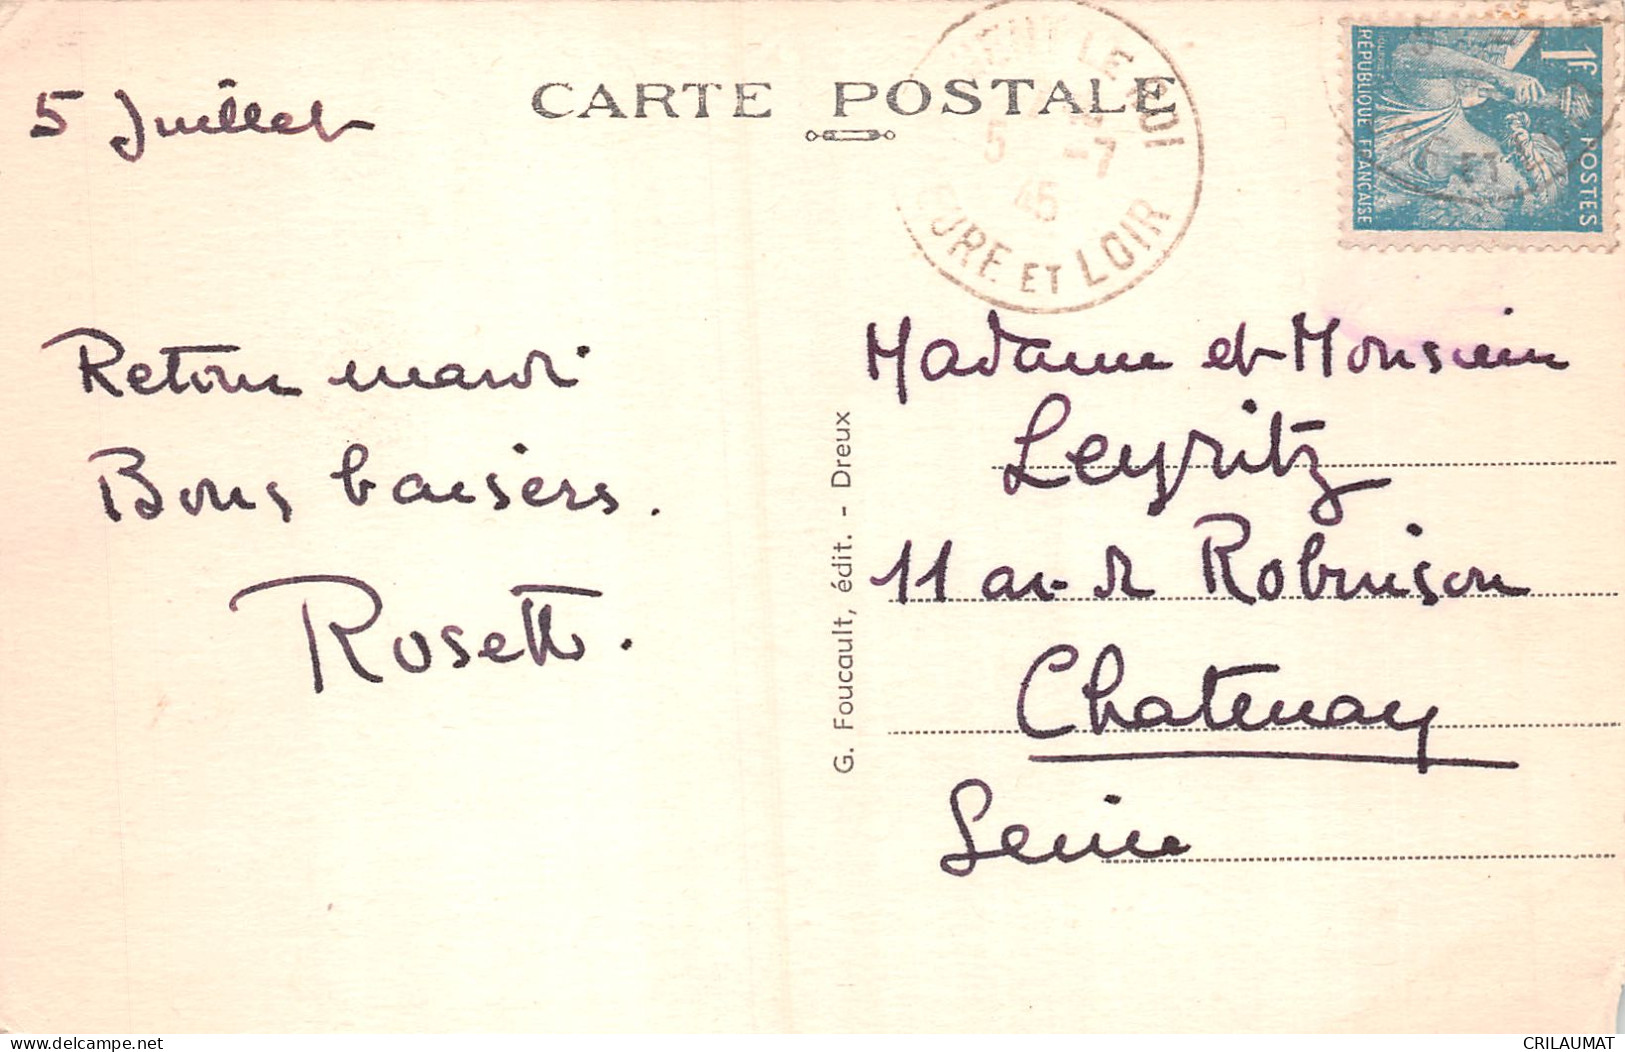 CARTE POSTALE
5 Juillet
Retour mardi
Bons baisers.
Rosette.
G. Foucault, édit. - Dreux
LE
5 -7
45
EURE ET LOIR
1F
POSTES
RÉPUBLIQUE FRANÇAISE
ET
Madame et Monsieur
Leyritz
11 av. de Robinson
Chatenay
Seine
Delcampe.net
CRILAUMAT